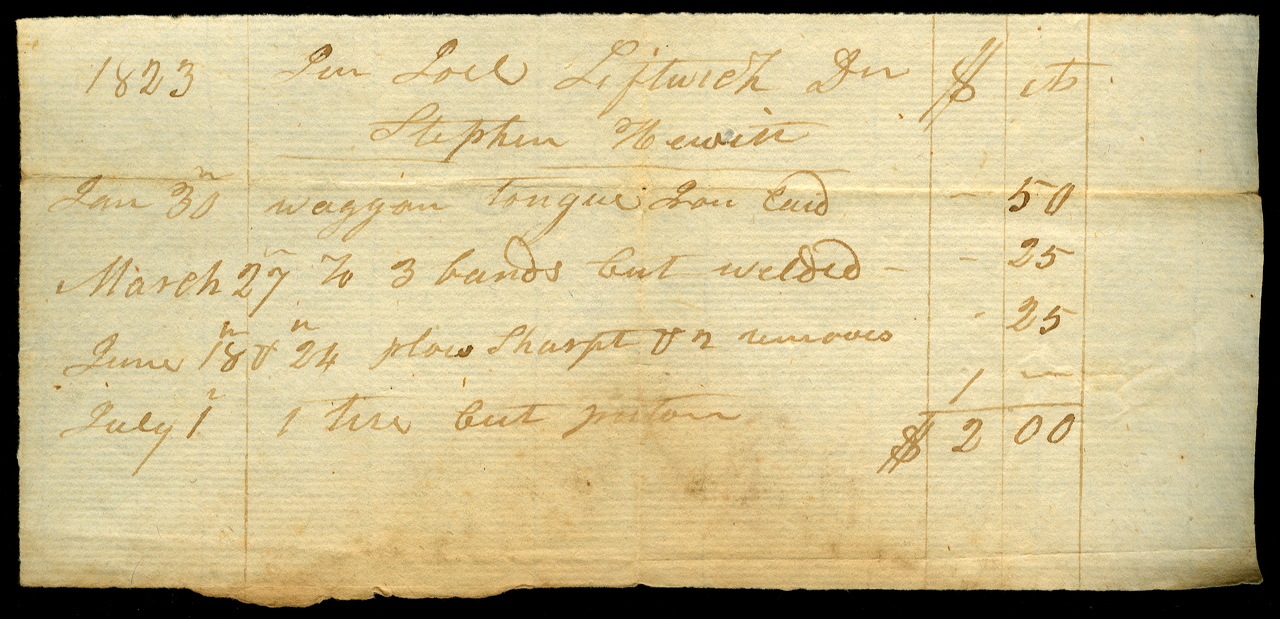 1823 Joel Leftwich Dr $ cts
Stephen Hewitt
Jan 30 waggon tongue Iron - 50
March 27 To 3 bands cut welded - - 25
June 18 & 24 plow Sharpt & 2 removes - 25
July 1 1 tire cut 1 —
$ 2 00